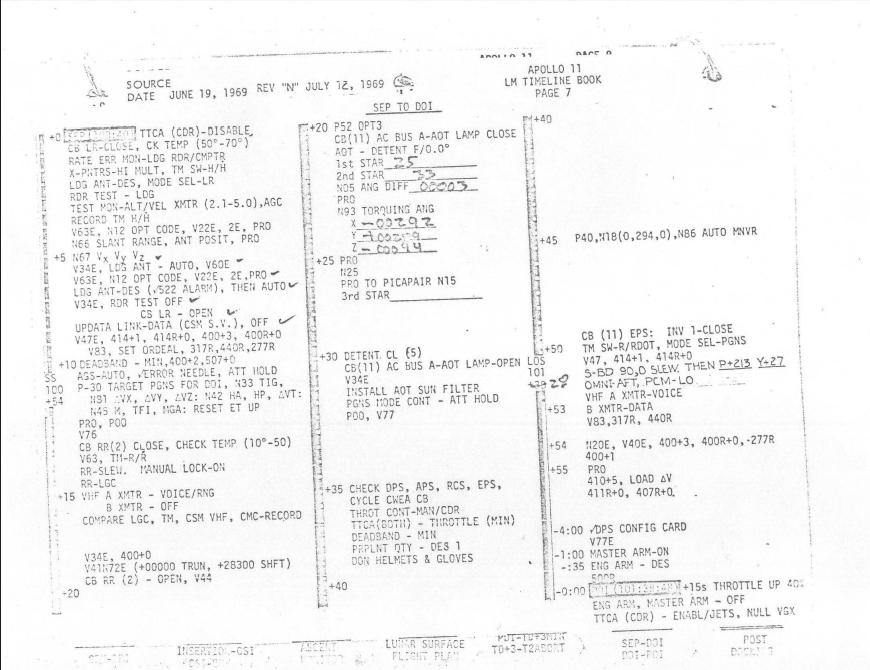 APOLLO 11 PAGE 8
SOURCE
DATE JUNE 19, 1969 REV "N" JULY 12, 1969
APOLLO 11
LM TIMELINE BOOK
PAGE 7
SEP TO DOI
+0 TTCA (CDR)-DISABLE
CB LR-CLOSE, CK TEMP (50°-70°)
RATE ERR MON-LDG RDR/CMPTR
X-PNTRS-HI MULT, TM SW-H/H
LDG ANT-DES, MODE SEL-LR
RDR TEST - LDG
TEST MON-ALT/VEL XMTR (2.1-5.0),AGC
RECORD TM H/H
V63E, N12 OPT CODE, V22E, 2E, PRO
N66 SLANT RANGE, ANT POSIT, PRO
+5 N67 Vx Vy Vz ✓
V34E, LDG ANT - AUTO, V60E ✓
V63E, N12 OPT CODE, V22E, 2E,PRO ✓
LDG ANT-DES (√522 ALARM), THEN AUTO ✓
V34E, RDR TEST OFF ✓
CB LR - OPEN ✓
UPDATA LINK-DATA (CSM S.V.), OFF ✓
V47E, 414+1, 414R+0, 400+3, 400R+0
V83, SET ORDEAL, 317R,440R,277R
+10 DEADBAND - MIN,400+2,507+0
SS AGS-AUTO, √ERROR NEEDLE, ATT HOLD
100 P-30 TARGET PGNS FOR DOI, N33 TIG,
+54 N81 ΔVX, ΔVY, ΔVZ: N42 HA, HP, ΔVT:
N45 M, TFI, MGA: RESET ET UP
PRO, POO
V76
CB RR(2) CLOSE, CHECK TEMP (10°-50)
V63, TM-R/R
RR-SLEW. MANUAL LOCK-ON
RR-LGC
+15 VHF A XMTR - VOICE/RNG
B XMTR - OFF
COMPARE LGC, TM, CSM VHF, CMC-RECORD
V34E, 400+0
V41N72E (+00000 TRUN, +28300 SHFT)
CB RR (2) - OPEN, V44
+20
+20 P52 OPT3
CB(11) AC BUS A-AOT LAMP CLOSE
AOT - DETENT F/0.0°
1st STAR 25
2nd STAR 33
N05 ANG DIFF 00003
PRO
N93 TORQUING ANG
X -00292
Y
Z -00094
+25 PRO
N25
PRO TO PICAPAIR N15
3rd STAR
+30 DETENT CL (5)
CB(11) AC BUS A-AOT LAMP-OPEN
V34E
INSTALL AOT SUN FILTER
PGNS MODE CONT - ATT HOLD
POO, V77
+35 CHECK DPS, APS, RCS, EPS,
CYCLE CWEA CB
THROT CONT-MAN/CDR
TTCA(BOTH) - THROTTLE (MIN)
DEADBAND - MIN
PRPLNT QTY - DES 1
DON HELMETS & GLOVES
+40
+40
+45 P40,N18(0,294,0),N86 AUTO MNVR
CB (11) EPS: INV 1-CLOSE
+50 TM SW-R/RDOT, MODE SEL-PGNS
LOS V47, 414+1, 414R+0
101 S-BD 90,0 SLEW. THEN P+213 Y+27
28 OMNI-AFT, PCM-LO
VHF A XMTR-VOICE
+53 B XMTR-DATA
V83,317R, 440R
+54 N20E, V40E, 400+3, 400R+0,-277R
400+1
+55 PRO
410+5, LOAD ΔV
411R+0, 407R+0
-4:00 √DPS CONFIG CARD
V77E
-1:00 MASTER ARM-ON
-:35 ENG ARM - DES
500R
-0:00 +15s THROTTLE UP 40%
ENG ARM, MASTER ARM - OFF
TTCA (CDR) - ENABL/JETS, NULL VGX
INSERTION-CSI
ASCENT
LUNAR SURFACE
FLIGHT PLAN
PDI-T0+3MIN
T0+3-T2ABORT
SEP-DOI
DOI-PDI
POST
DOCKING